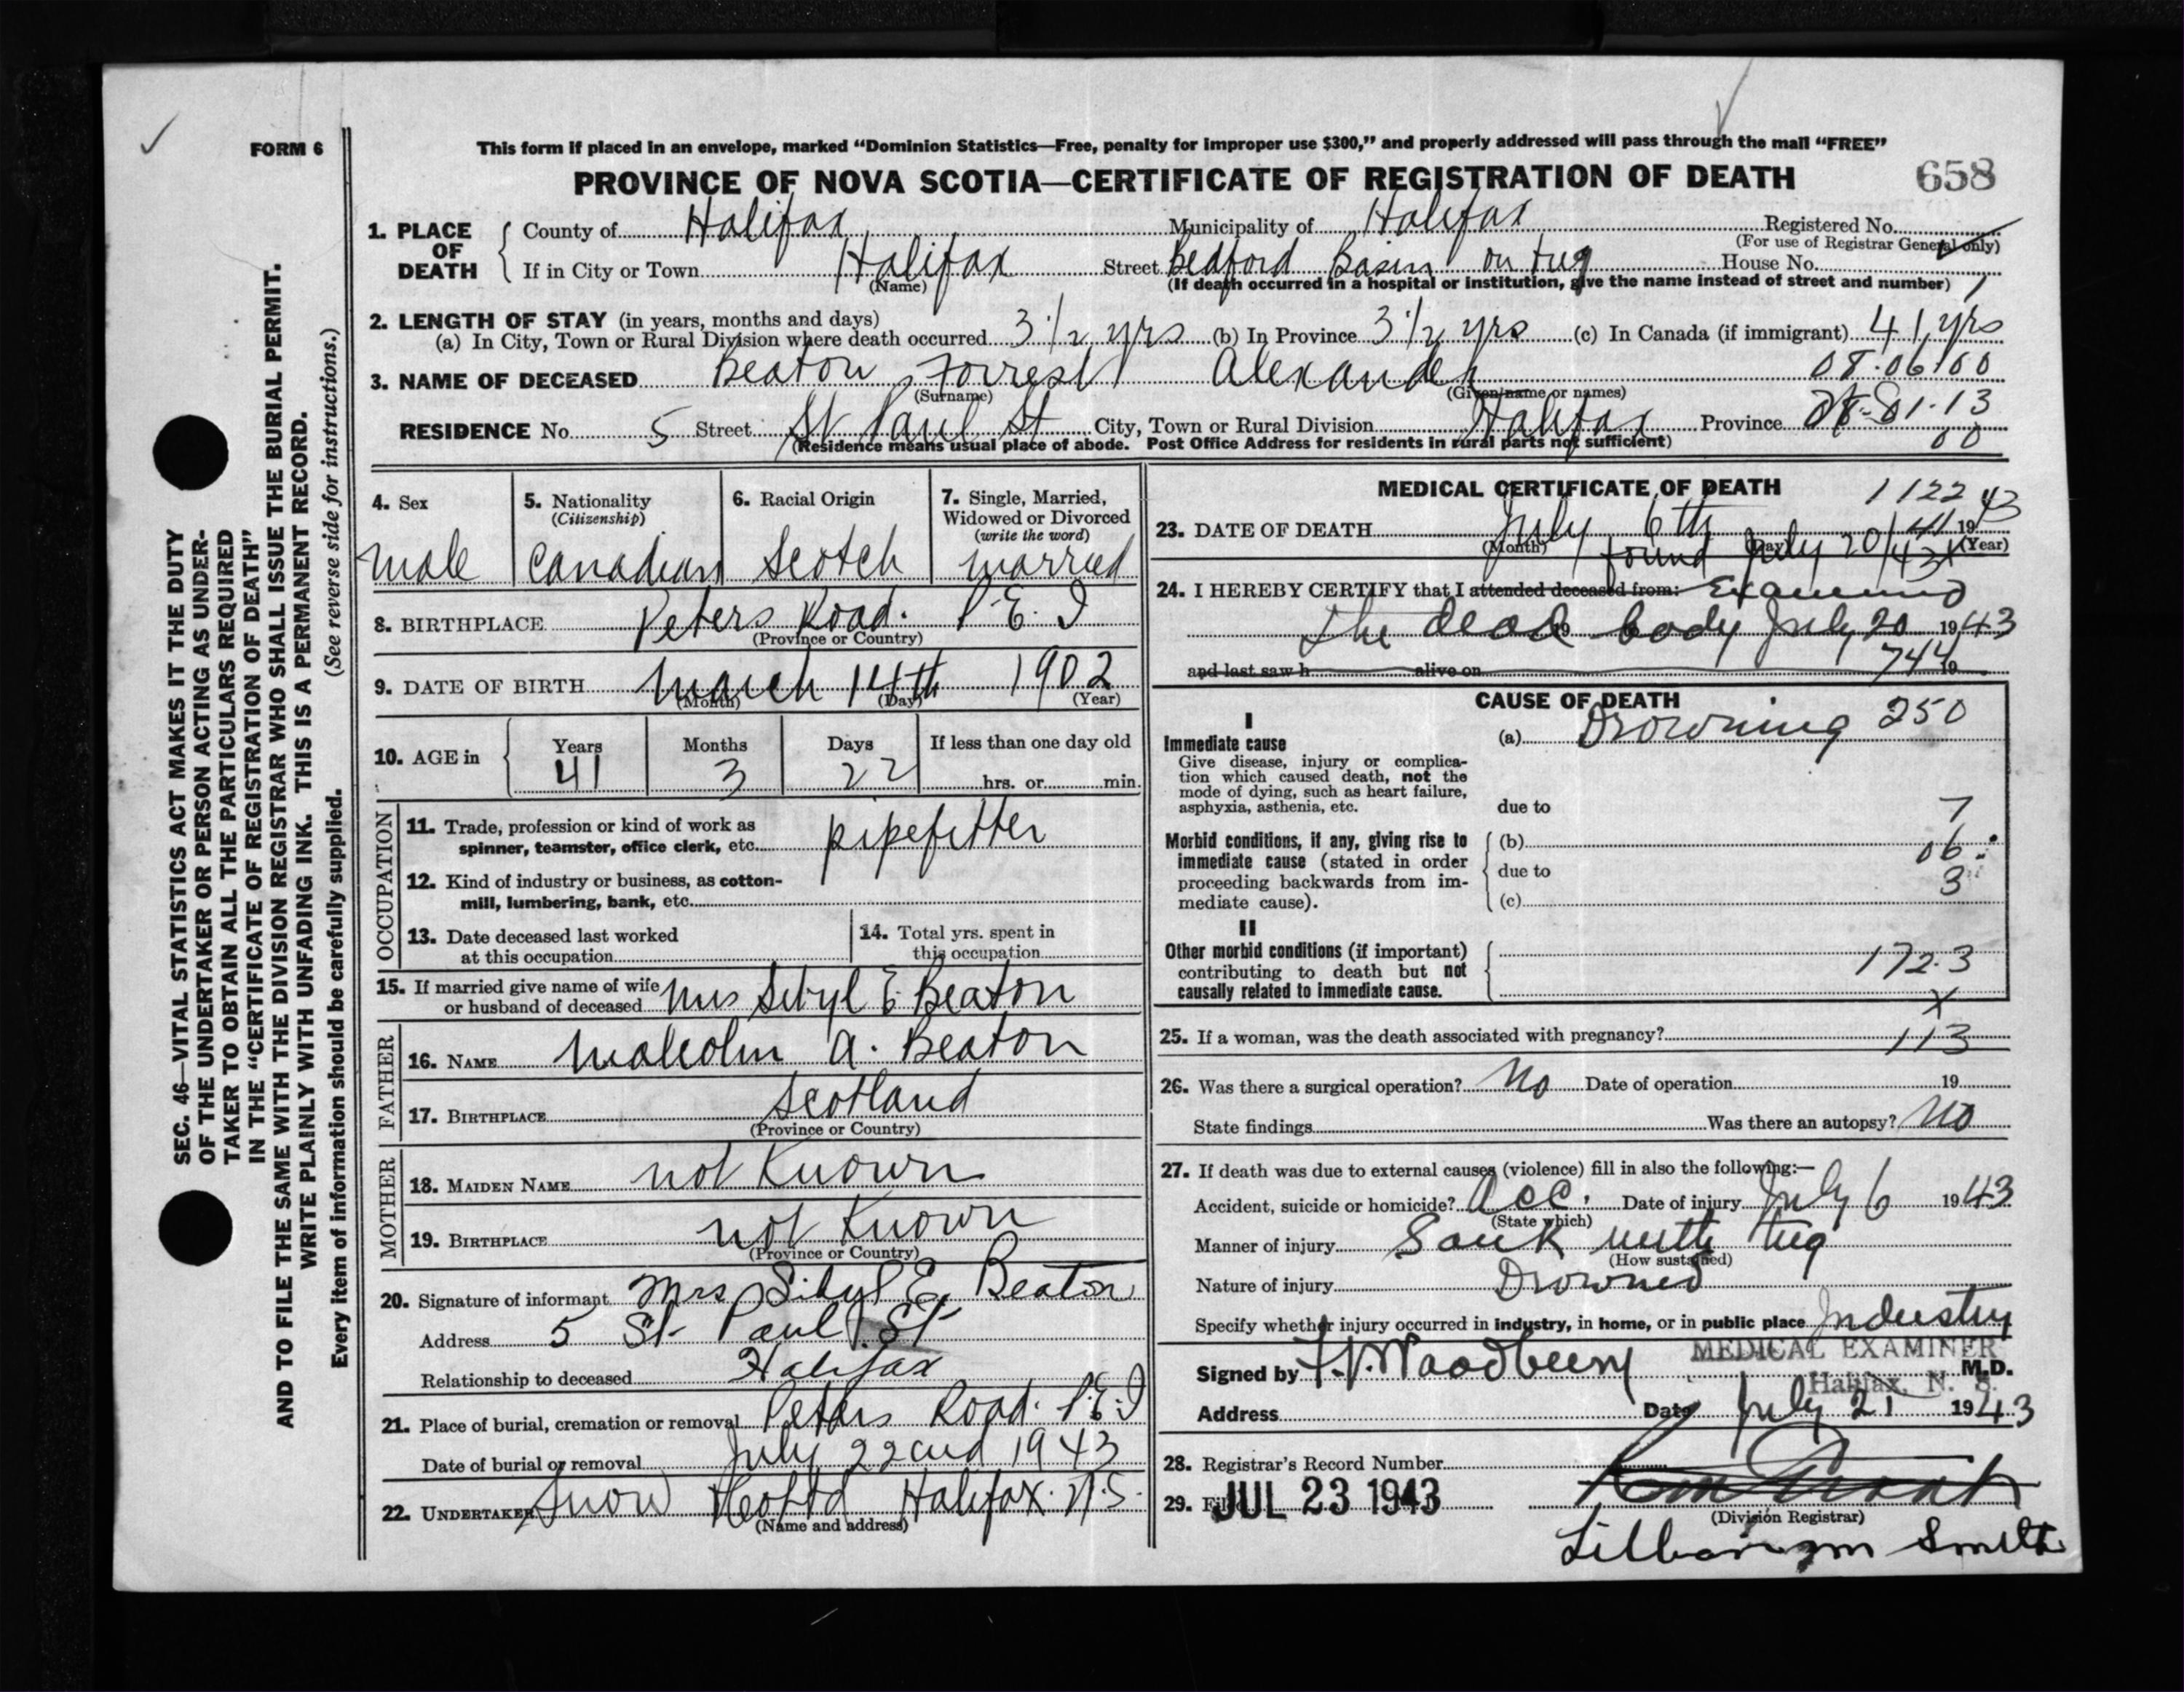 FORM 6
This form if placed in an envelope, marked “Dominion Statistics—Free, penalty for improper use $300,” and properly addressed will pass through the mail “FREE”
PROVINCE OF NOVA SCOTIA—CERTIFICATE OF REGISTRATION OF DEATH 658
SEC. 46—VITAL STATISTICS ACT MAKES IT THE DUTY
OF THE UNDERTAKER OR PERSON ACTING AS UNDER-
TAKER TO OBTAIN ALL THE PARTICULARS REQUIRED
IN THE “CERTIFICATE OF REGISTRATION OF DEATH”
AND TO FILE THE SAME WITH THE DIVISION REGISTRAR WHO SHALL ISSUE THE BURIAL PERMIT.
WRITE PLAINLY WITH UNFADING INK. THIS IS A PERMANENT RECORD.
(See reverse side for instructions.)
Every item of information should be carefully supplied.
1. PLACE OF DEATH
County of Halifax Municipality of Halifax Registered No.
(For use of Registrar General only)
If in City or Town Halifax Street Bedford Basin on tug House No.
(Name) (If death occurred in a hospital or institution, give the name instead of street and number) 1
2. LENGTH OF STAY (in years, months and days)
(a) In City, Town or Rural Division where death occurred 3 1/2 yrs (b) In Province 3 1/2 yrs (c) In Canada (if immigrant) 41 yrs
3. NAME OF DECEASED Beaton, Forrest Alexander 08.06100
(Surname) (Given name or names)
RESIDENCE No. 5 Street St Paul St City, Town or Rural Division Halifax Province
(Residence means usual place of abode. Post Office Address for residents in rural parts not sufficient) 00
4. Sex
male
5. Nationality
(Citizenship)
Canadian
6. Racial Origin
Scotch
7. Single, Married,
Widowed or Divorced
(write the word)
married
8. BIRTHPLACE Peters Road. P.E.I
(Province or Country)
9. DATE OF BIRTH March 14th 1902
(Month) (Day) (Year)
10. AGE in
Years Months Days If less than one day old
41 3 22 hrs. or min.
OCCUPATION
11. Trade, profession or kind of work as
spinner, teamster, office clerk, etc. pipefitter
12. Kind of industry or business, as cotton-
mill, lumbering, bank, etc.
13. Date deceased last worked
at this occupation
14. Total yrs. spent in
this occupation
15. If married give name of wife
or husband of deceased Mrs Sibyl E Beaton
FATHER
16. NAME Malcolm A. Beaton
17. BIRTHPLACE Scotland
(Province or Country)
MOTHER
18. MAIDEN NAME not Known
19. BIRTHPLACE not Known
(Province or Country)
20. Signature of informant Mrs Sibyl E. Beaton
Address 5 St Paul St
Relationship to deceased Halifax
21. Place of burial, cremation or removal Peters Road. P.E.I
Date of burial or removal July 22cnd 1943
22. UNDERTAKER Snow & Co Ltd Halifax. N.S.
(Name and address)
MEDICAL CERTIFICATE OF DEATH 1122
23. DATE OF DEATH July 6th 1943
(Month) (Day) (Year)
found July 20/43
24. I HEREBY CERTIFY that I attended deceased from: Examined
the dead body July 20 1943
19
and last saw h alive on 19
744
CAUSE OF DEATH
I
Immediate cause
Give disease, injury or complica-
tion which caused death, not the
mode of dying, such as heart failure,
asphyxia, asthenia, etc.
(a) Drowning 250
due to
7
Morbid conditions, if any, giving rise to
immediate cause (stated in order
proceeding backwards from im-
mediate cause).
(b)
06
due to
3
(c)
II
Other morbid conditions (if important)
contributing to death but not
causally related to immediate cause.
172.3
x
25. If a woman, was the death associated with pregnancy? 113
26. Was there a surgical operation? No Date of operation 19
State findings Was there an autopsy? No
27. If death was due to external causes (violence) fill in also the following:—
Accident, suicide or homicide? Acc. Date of injury July 6 1943
(State which)
Manner of injury Sunk with tug
(How sustained)
Nature of injury Drowned
Specify whether injury occurred in industry, in home, or in public place Industry
Signed by Woodbury MEDICAL EXAMINER M.D.
Halifax, N. S.
Address Date July 21 1943
28. Registrar's Record Number
29. Filed JUL 23 1943
(Division Registrar)
Smith